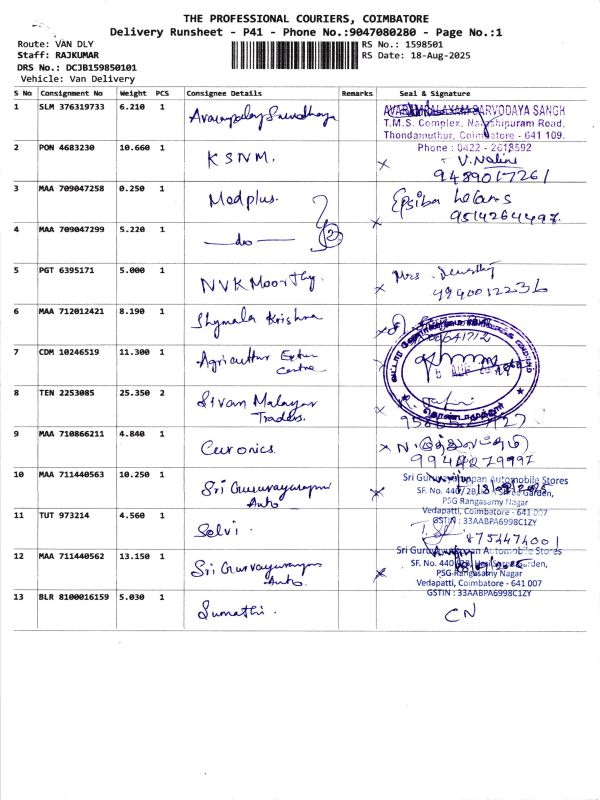 THE PROFESSIONAL COURIERS, COIMBATORE
Delivery Runsheet - P41 - Phone No.:9047080280 - Page No.:1
Route: VAN DLY
RS No.: 1598501
Staff: RAJKUMAR
RS Date: 18-Aug-2025
DRS No.: DCJB159850101
Vehicle: Van Delivery
S No Consignment No Weight PCS Consignee Details Remarks Seal & Signature
1 SLM 376319733 6.210 1
T.M.S. Complex, Narashipuram Road,
Thondamuthur, Coimbatore - 641 109.
Phone : 0422 - 2618592
2 PON 4683230 10.660 1 KSNM. V. Nalini
9489017261
3 MAA 709047258 0.250 1 Medplus.
9514264497.
4 MAA 709047299 5.220 1 —do— 2
5 PGT 6395171 5.000 1 NVK Moorthy. Mrs.
6 MAA 712012421 8.190 1 Shymala Krishna
7 CDM 10246519 11.300 1 Agricultur Exten
Centre
8 TEN 2253085 25.350 2 Sivan Malayar
Traders.
9 MAA 710866211 4.840 1 Curonics.
9944279997
10 MAA 711440563 10.250 1 Sri Guruvayurappan
Auto
Sri Guruvayurappan Automobile Stores
SF. No. 440/2B, Hari Sree Garden,
PSG Rangasamy Nagar
Vedapatti, Coimbatore - 641 007
GSTIN : 33AABPA6998C1ZY
11 TUT 973214 4.560 1 Selvi.
12 MAA 711440562 13.150 1 Sri Guruvayurappan
Auto.
Sri Guruvayurappan Automobile Stores
SF. No. 440/2B, Hari Sree Garden,
PSG Rangasamy Nagar
Vedapatti, Coimbatore - 641 007
GSTIN : 33AABPA6998C1ZY
13 BLR 8100016159 5.030 1 Sumathi. CN